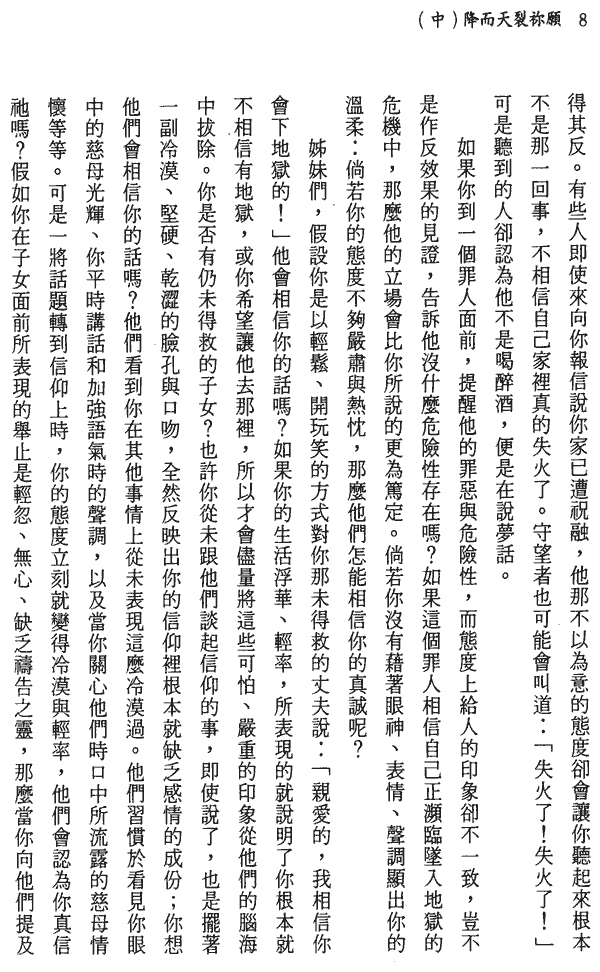 8　願祢裂天而降（中）
得其反。有些人即使來向你報信說你家已遭祝融，他那不以為意的態度卻會讓你聽起來根本
不是那一回事，不相信自己家裡真的失火了。守望者也可能會叫道：「失火了！失火了！」
可是聽到的人卻認為他不是喝醉酒，便是在說夢話。
如果你到一個罪人面前，提醒他的罪惡與危險性，而態度上給人的印象卻不一致，豈不
是作反效果的見證，告訴他沒什麼危險性存在嗎？如果這個罪人相信自己正瀕臨墜入地獄的
危機中，那麼他的立場會比你所說的更為篤定。倘若你沒有藉著眼神、表情、聲調顯出你的
溫柔：倘若你的態度不夠嚴肅與熱忱，那麼他們怎能相信你的真誠呢？
姊妹們，假設你是以輕鬆、開玩笑的方式對你那未得救的丈夫說：「親愛的，我相信你
會下地獄的！」他會相信你的話嗎？如果你的生活浮華、輕率，所表現的就說明了你根本就
不相信有地獄，或你希望讓他去那裡，所以才會儘量將這些可怕、嚴重的印象從他們的腦海
中拔除。你是否有仍未得救的子女？也許你從未跟他們談起信仰的事，即使說了，也是擺著
一副冷漠、堅硬、乾澀的臉孔與口吻，全然反映出你的信仰裡根本就缺乏感情的成份；你想
他們會相信你的話嗎？他們看到你在其他事情上從未表現這麼冷漠過。他們習慣於看見你眼
中的慈母光輝、你平時講話和加強語氣時的聲調，以及當你關心他們時口中所流露的慈母情
懷等等。可是一將話題轉到信仰上時，你的態度立刻就變得冷漠與輕率，他們會認為你真信
祂嗎？假如你在子女面前所表現的舉止是輕忽、無心、缺乏禱告之靈，那麼當你向他們提及